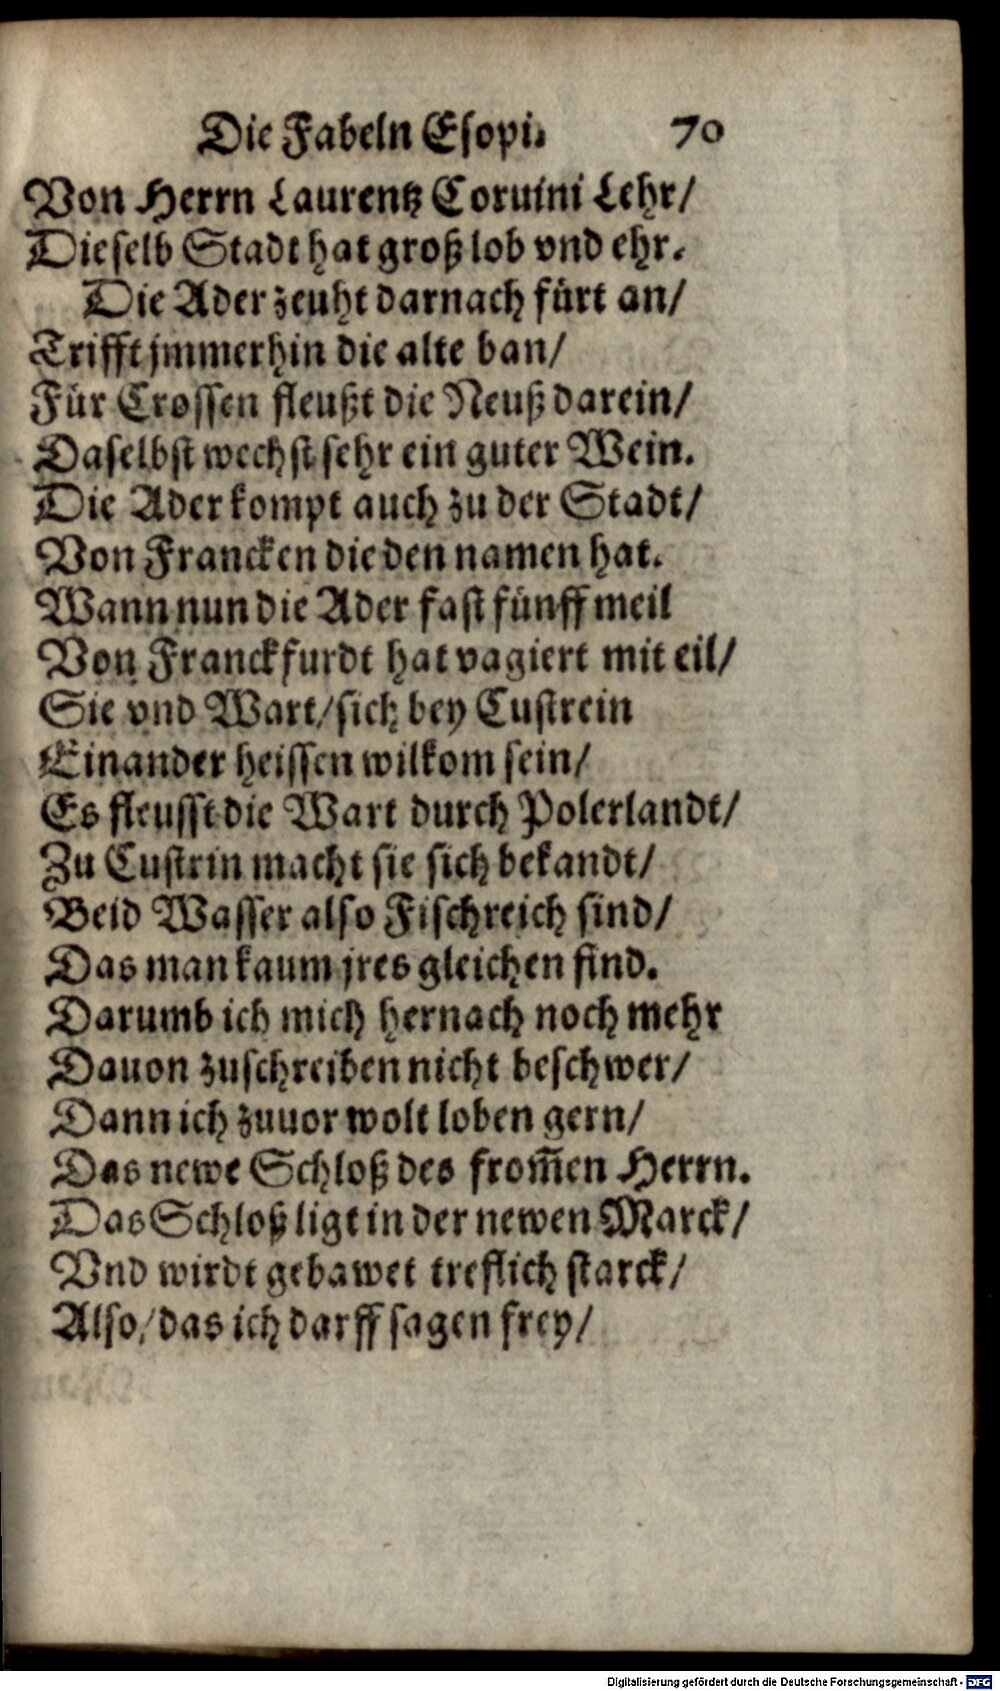 Die Fabeln Esopi. 70
Von Herrn Laurentz Coruini Lehr/
Dieselb Stadt hat groß lob vnd ehr.
Die Ader zeuht darnach fürt an/
Trifft jmmerhin die alte ban/
Für Crossen fleußt die Neuß darein/
Daselbst wechst sehr ein guter Wein.
Die Ader kompt auch zu der Stadt/
Von Francken die den namen hat.
Wann nun die Ader fast fünff meil
Von Franckfurdt hat vagiert mit eil/
Sie vnd Wart/ sich bey Custrein
Einander heissen wilkom sein/
Es fleusst die Wart durch Polerlandt/
Zu Custrin macht sie sich bekandt/
Beid Wasser also Fischreich sind/
Das man kaum jres gleichen find.
Darumb ich mich hernach noch mehr
Dauon zuschreiben nicht beschwer/
Dann ich zuuor wolt loben gern/
Das newe Schloß des from̃en Herrn.
Das Schloß ligt in der newen Marck/
Vnd wirdt gebawet treflich starck/
Also/ das ich darff sagen frey/
Digitalisierung gefördert durch die Deutsche Forschungsgemeinschaft - DFG